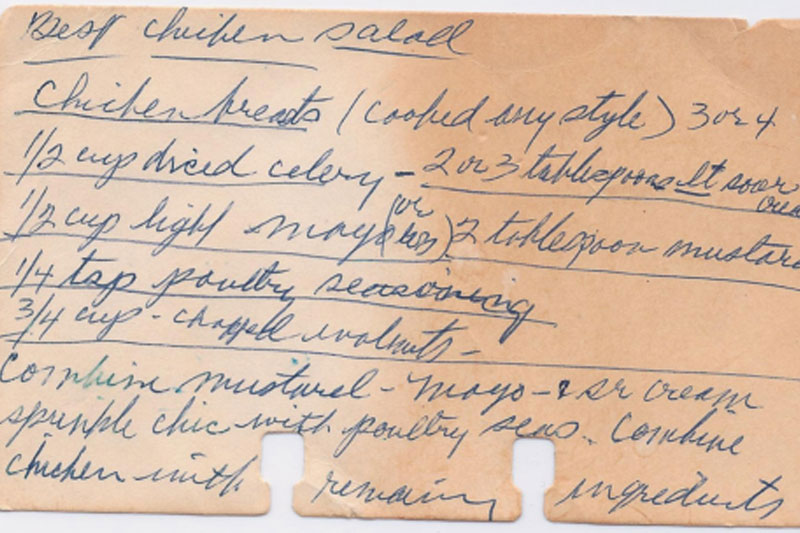 Best chicken salad
Chicken breasts (cooked any style) 3 or 4
1/2 cup diced celery - 2 or 3 tablespoons lt sour cream
1/2 cup light mayo (or less) 2 tablespoon mustard
1/4 tsp poultry seasoning
3/4 cup - chopped walnuts -
Combine mustard - mayo - & sr cream
sprinkle chic with poultry seas. Combine
chicken with remaining ingredients